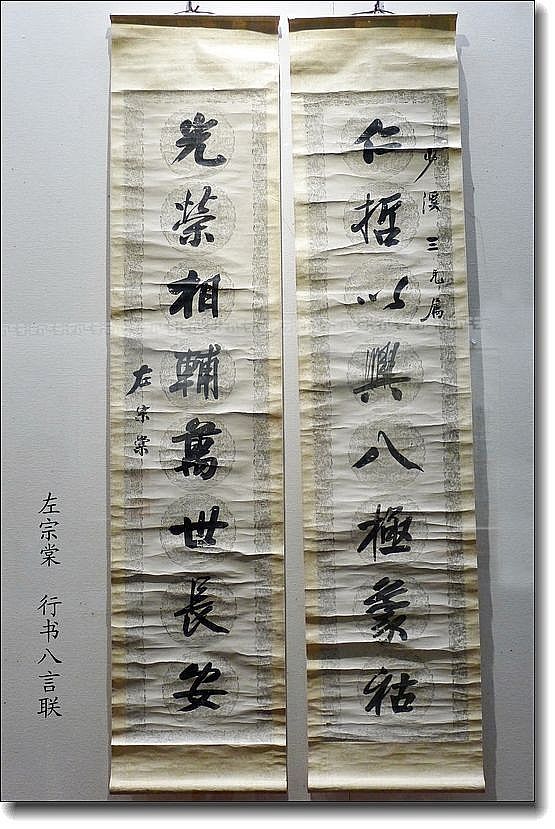 少溪三兄属
仁哲以興八極蒙祜
光榮相輔萬世長安
左宗棠
左宗棠 行书八言联